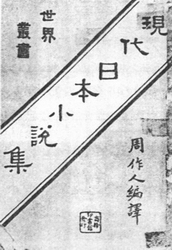 世界
叢書
現代日本小說集
周作人編譯